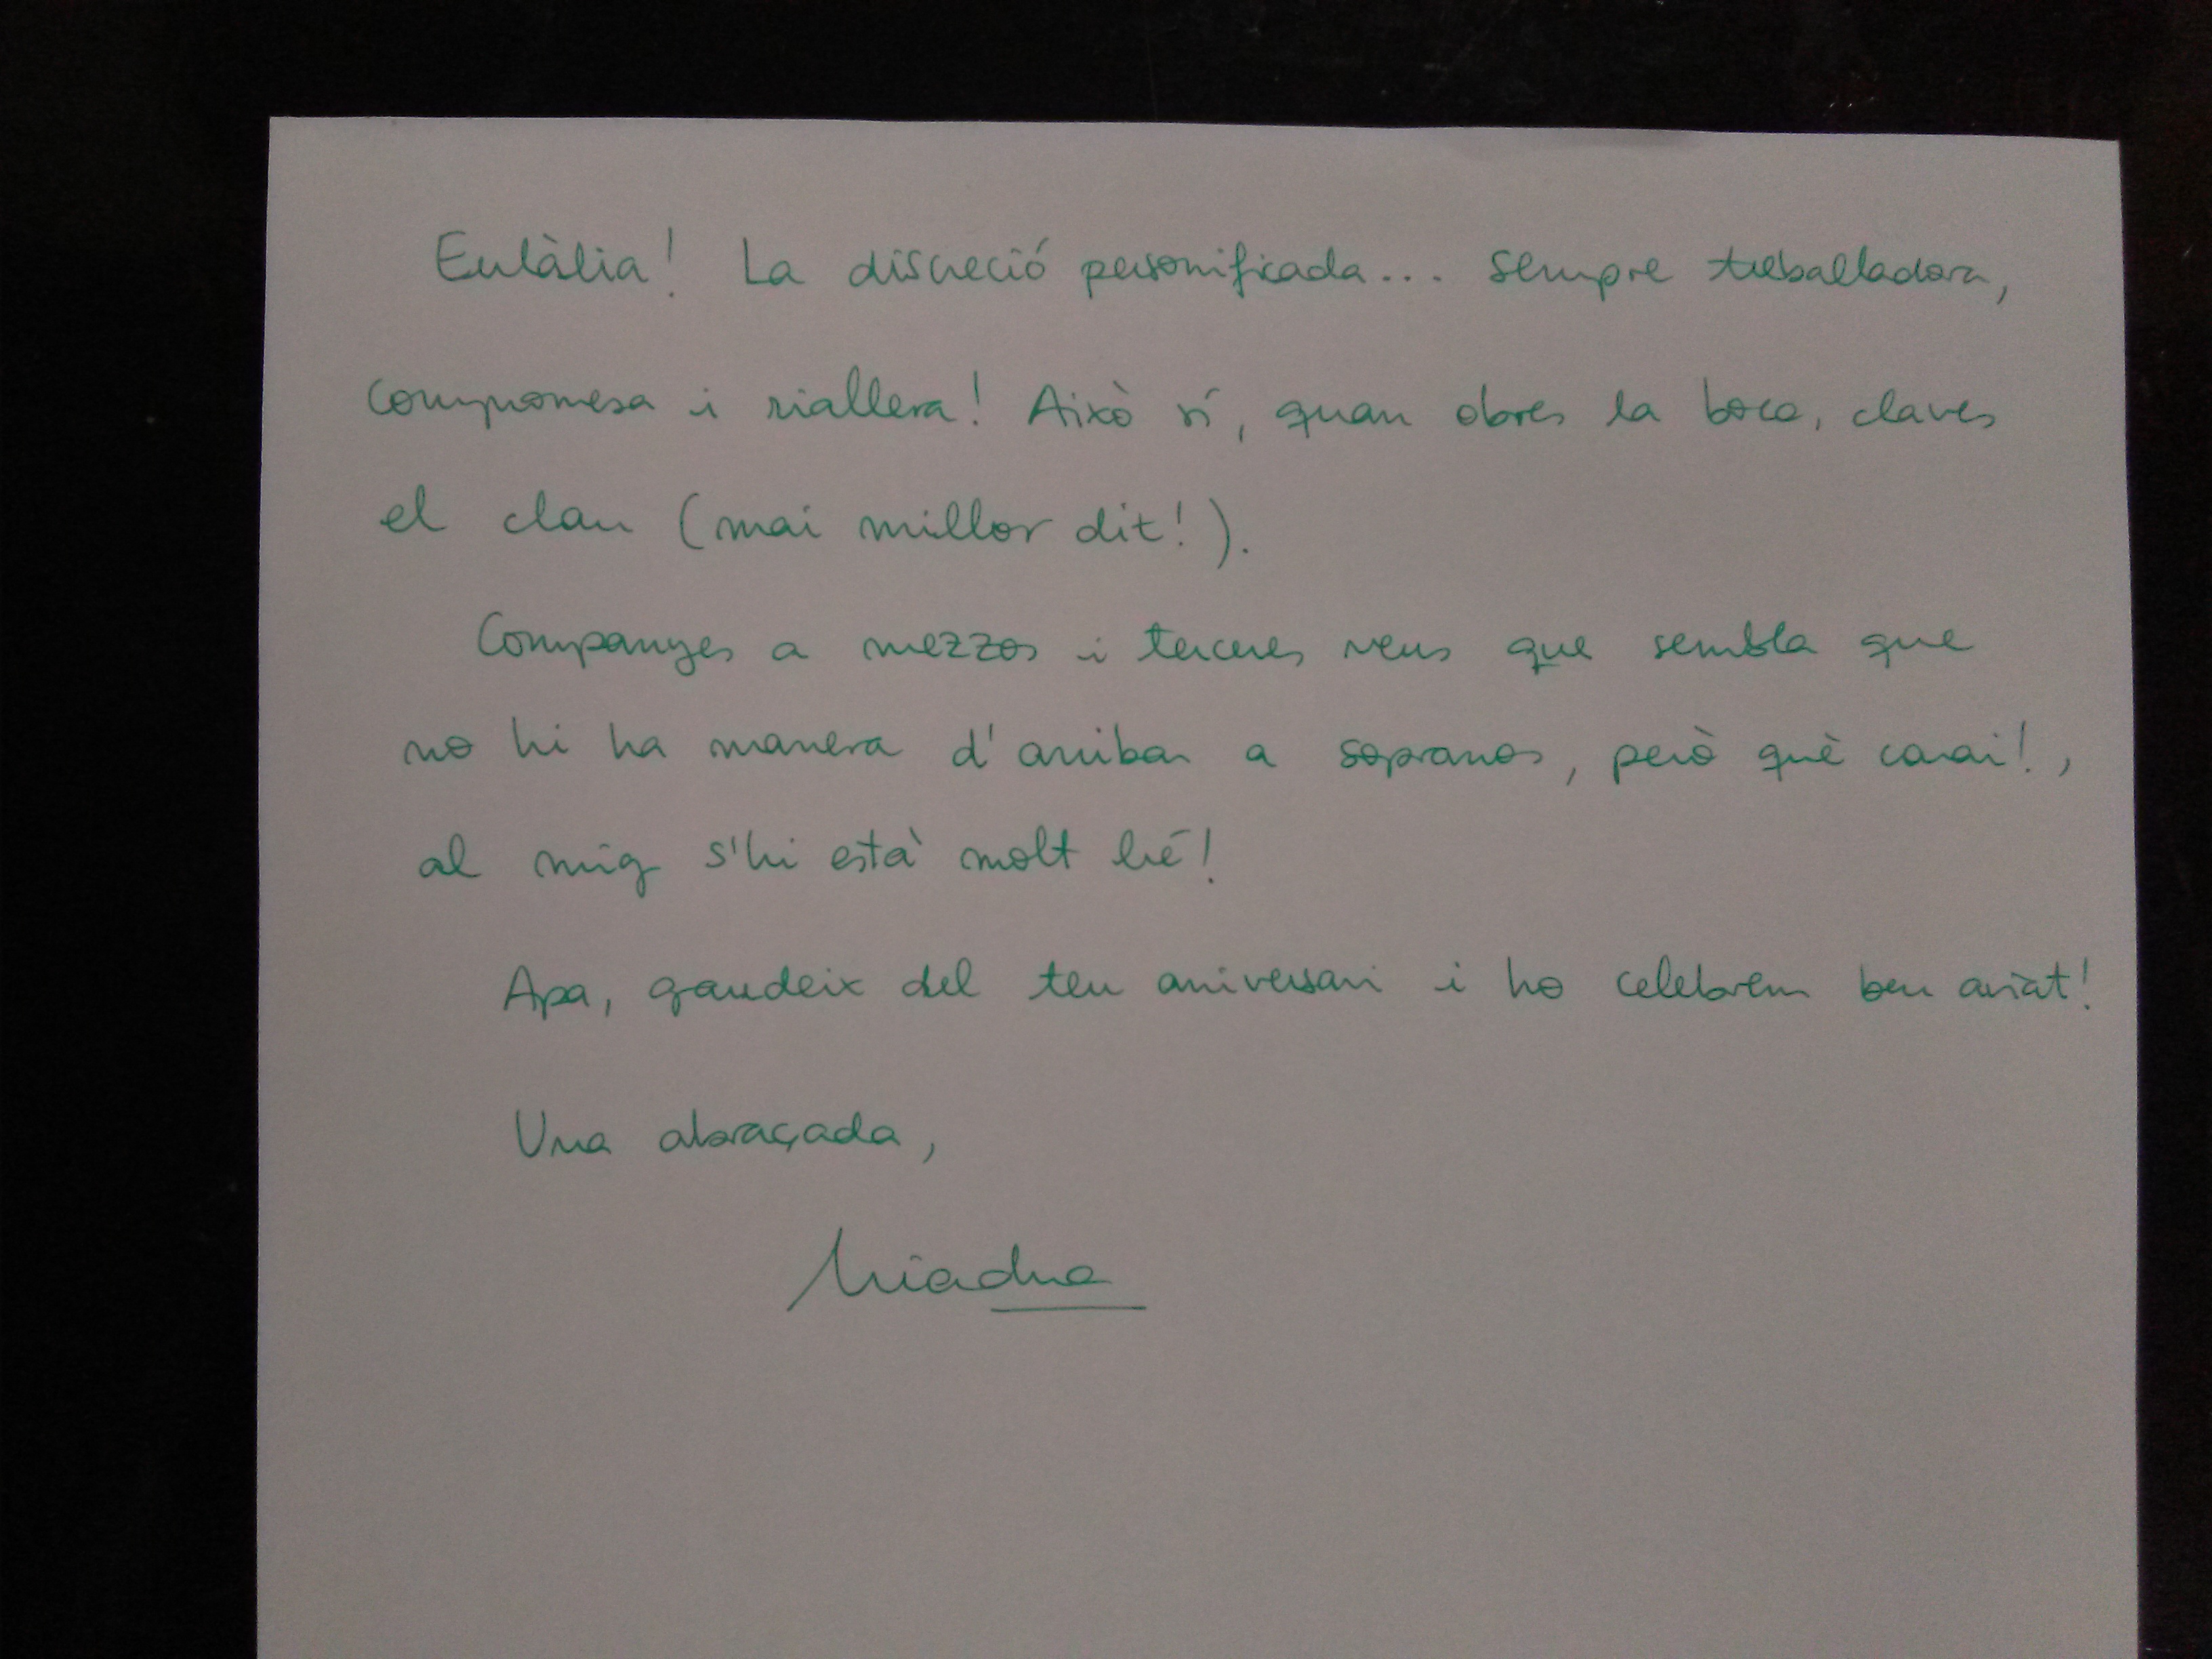 Eulàlia! La discreció personificada... sempre treballadora,
compromesa i riallera! Això sí, quan obres la boca, claves
el clau (mai millor dit!).
Companyes a mezzos i terceres veus que sembla que
no hi ha manera d'arribar a sopranos, però què carai!,
al mig s'hi està molt bé!
Apa, gaudeix del teu aniversari i ho celebrem ben aviat!
Una abraçada,
Ariadna